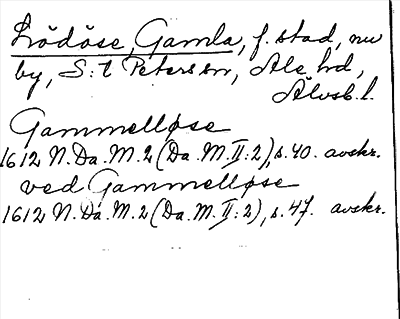 Lödöse, Gamla, f. stad, nu
by, S:t Peters sn, Ale hd,
Älvsb. l.
Gammelløse
1612 N. Da. M. 2 (Da. M. II: 2), s. 40. avskr.
ved Gammelløse
1612 N. Da. M. 2 (Da. M. II: 2), s. 47. avskr.